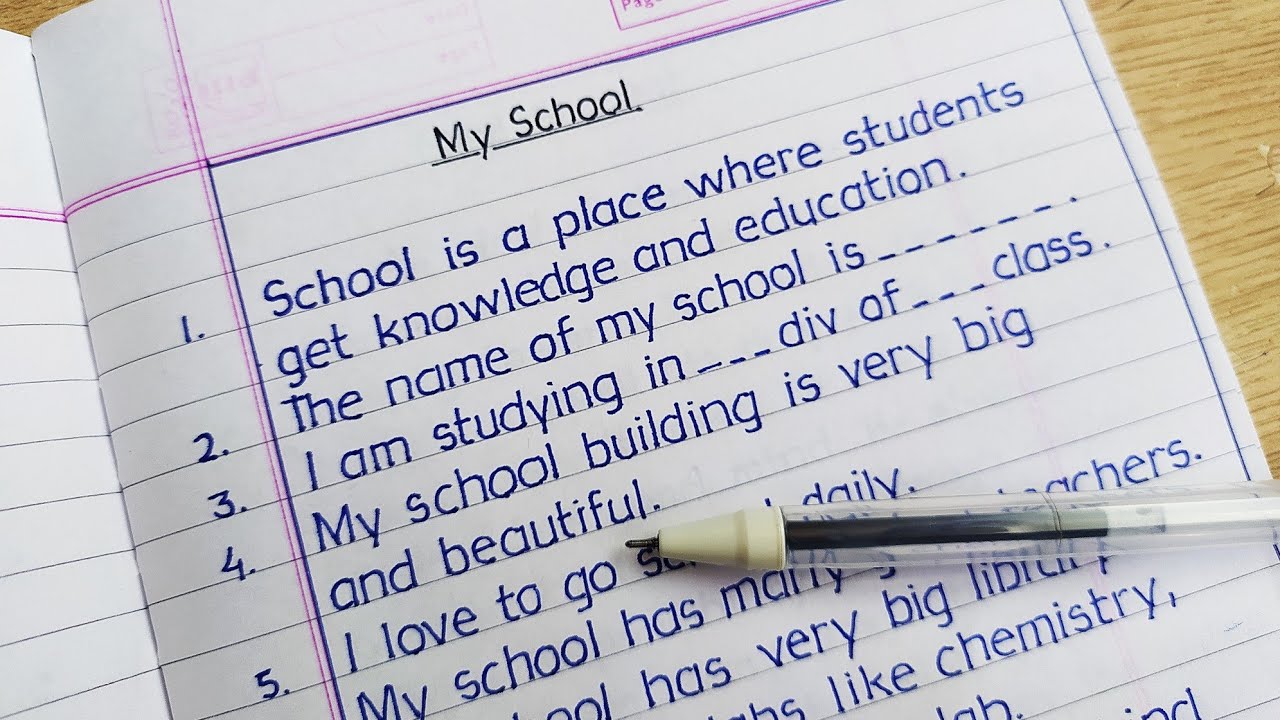 Page
My School
1. School is a place where students
get knowledge and education.
2. The name of my school is -------.
3. I am studying in ---div of ---class.
4. My school building is very big
and beautiful.
5. I love to go daily.
My school has many teachers.
has very big
like chemistry,
lab.